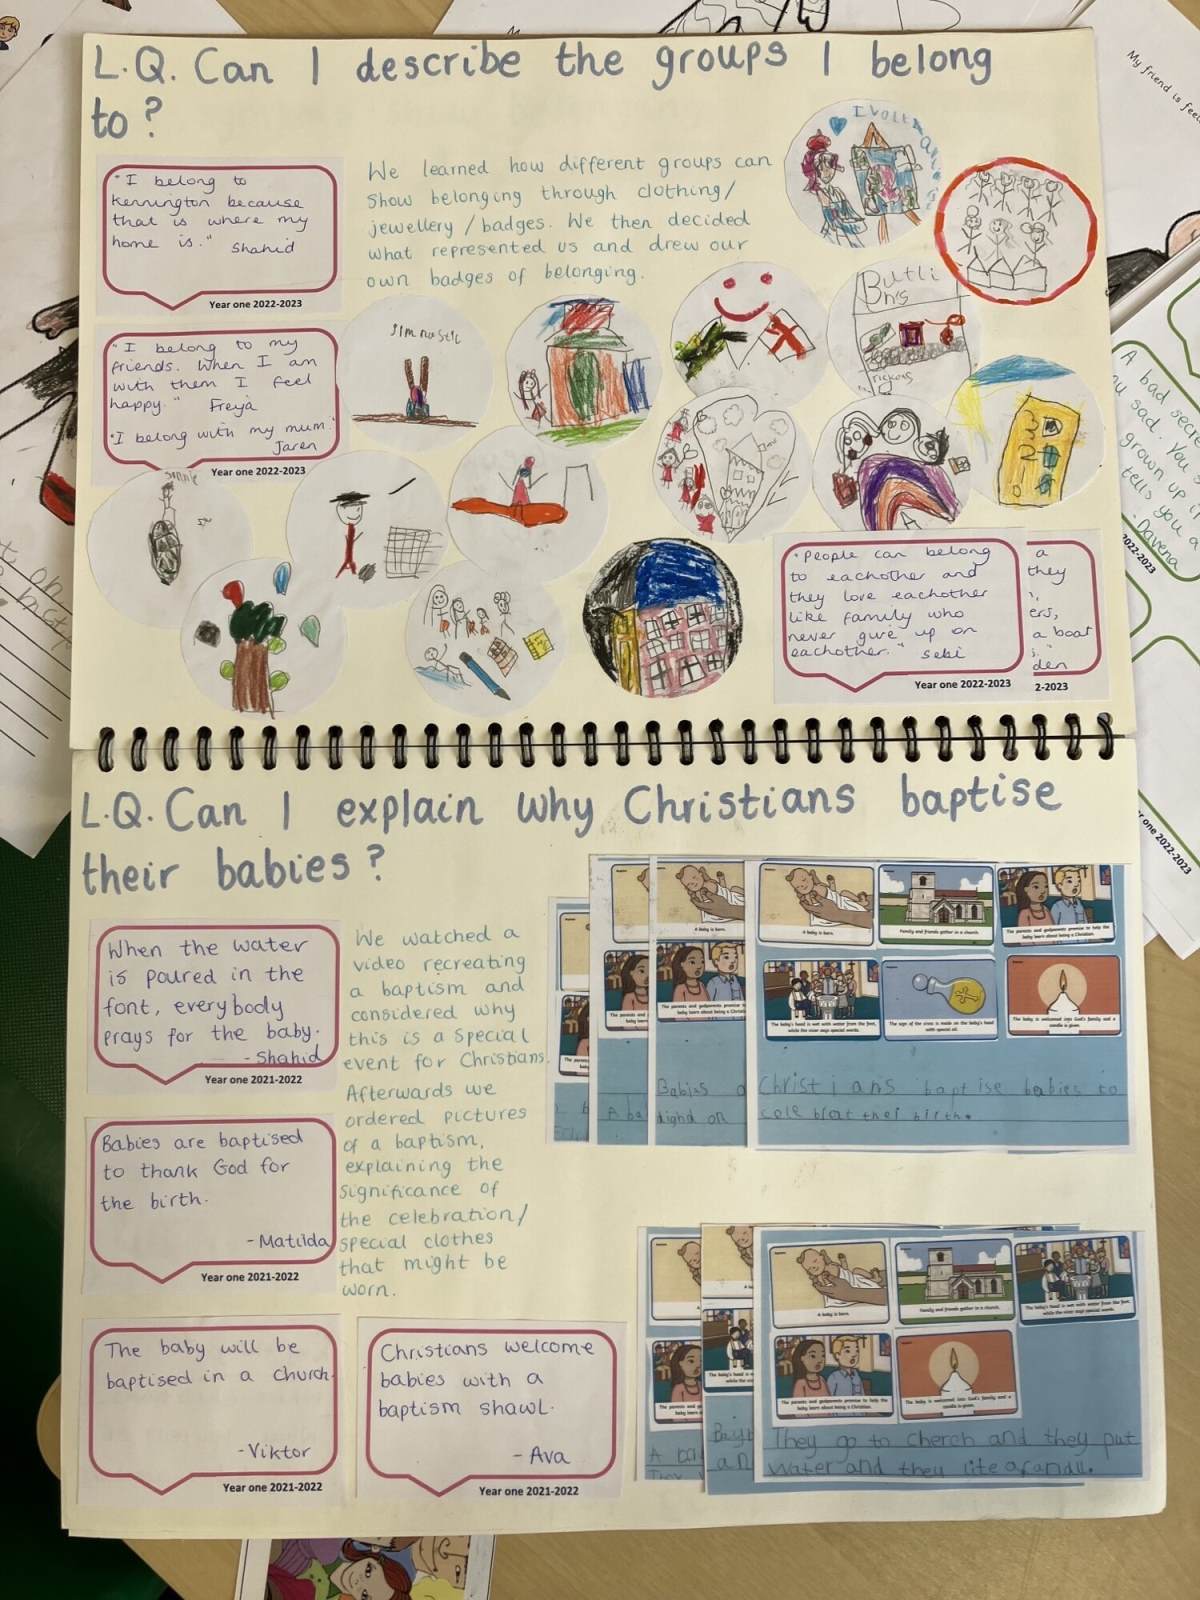 L.Q. Can I describe the groups I belong
to?
"I belong to
Kennington because
that is where my
home is." Shahid
Year one 2022-2023
We learned how different groups can
show belonging through clothing/
jewellery/badges. We then decided
what represented us and drew our
own badges of belonging.
"I belong to my
friends. When I am
with them I feel
happy." Freya
"I belong with my mum."
Jaren
Year one 2022-2023
Butlins
"People can belong
to eachother and
they love eachother
like family who
never give up on
eachother." Sebi
Year one 2022-2023
a
they
ers,
a boat
den
2-2023
L.Q. Can I explain why Christians baptise
their babies?
When the water
is poured in the
font, everybody
prays for the baby.
- Shahid
Year one 2021-2022
Babies are baptised
to thank God for
the birth.
- Matilda
Year one 2021-2022
The baby will be
baptised in a church.
- Viktor
Year one 2021-2022
Christians welcome
babies with a
baptism shawl.
- Ava
Year one 2021-2022
We watched a
video recreating
a baptism and
considered why
this is a special
event for Christians.
Afterwards we
ordered pictures
of a baptism,
explaining the
significance of
the celebration/
special clothes
that might be
worn.
A baby is born.
A baby is born.
Family and friends gather in a church.
The parents and godparents promise to help the
baby learn about being a Christian.
The baby's head is wet with water from the font,
while the vicar says special words.
The sign of the cross is made on the baby's head
with special oil.
The baby is welcomed into God's family and a
candle is given.
Christians baptise babies to
cele brat ther birth.
A baby is born.
Family and friends gather in a church.
The baby's head is wet with water from the font,
while the vicar says special words.
The parents and godparents promise to help the
baby learn about being a Christian.
The baby is welcomed into God's family and a
candle is given.
They go to cherch and they put
water and they lite a candll.
My friend is feel
A bad secre
grown up i
tells you a
- Davena
2022-2023
one 2022-2023